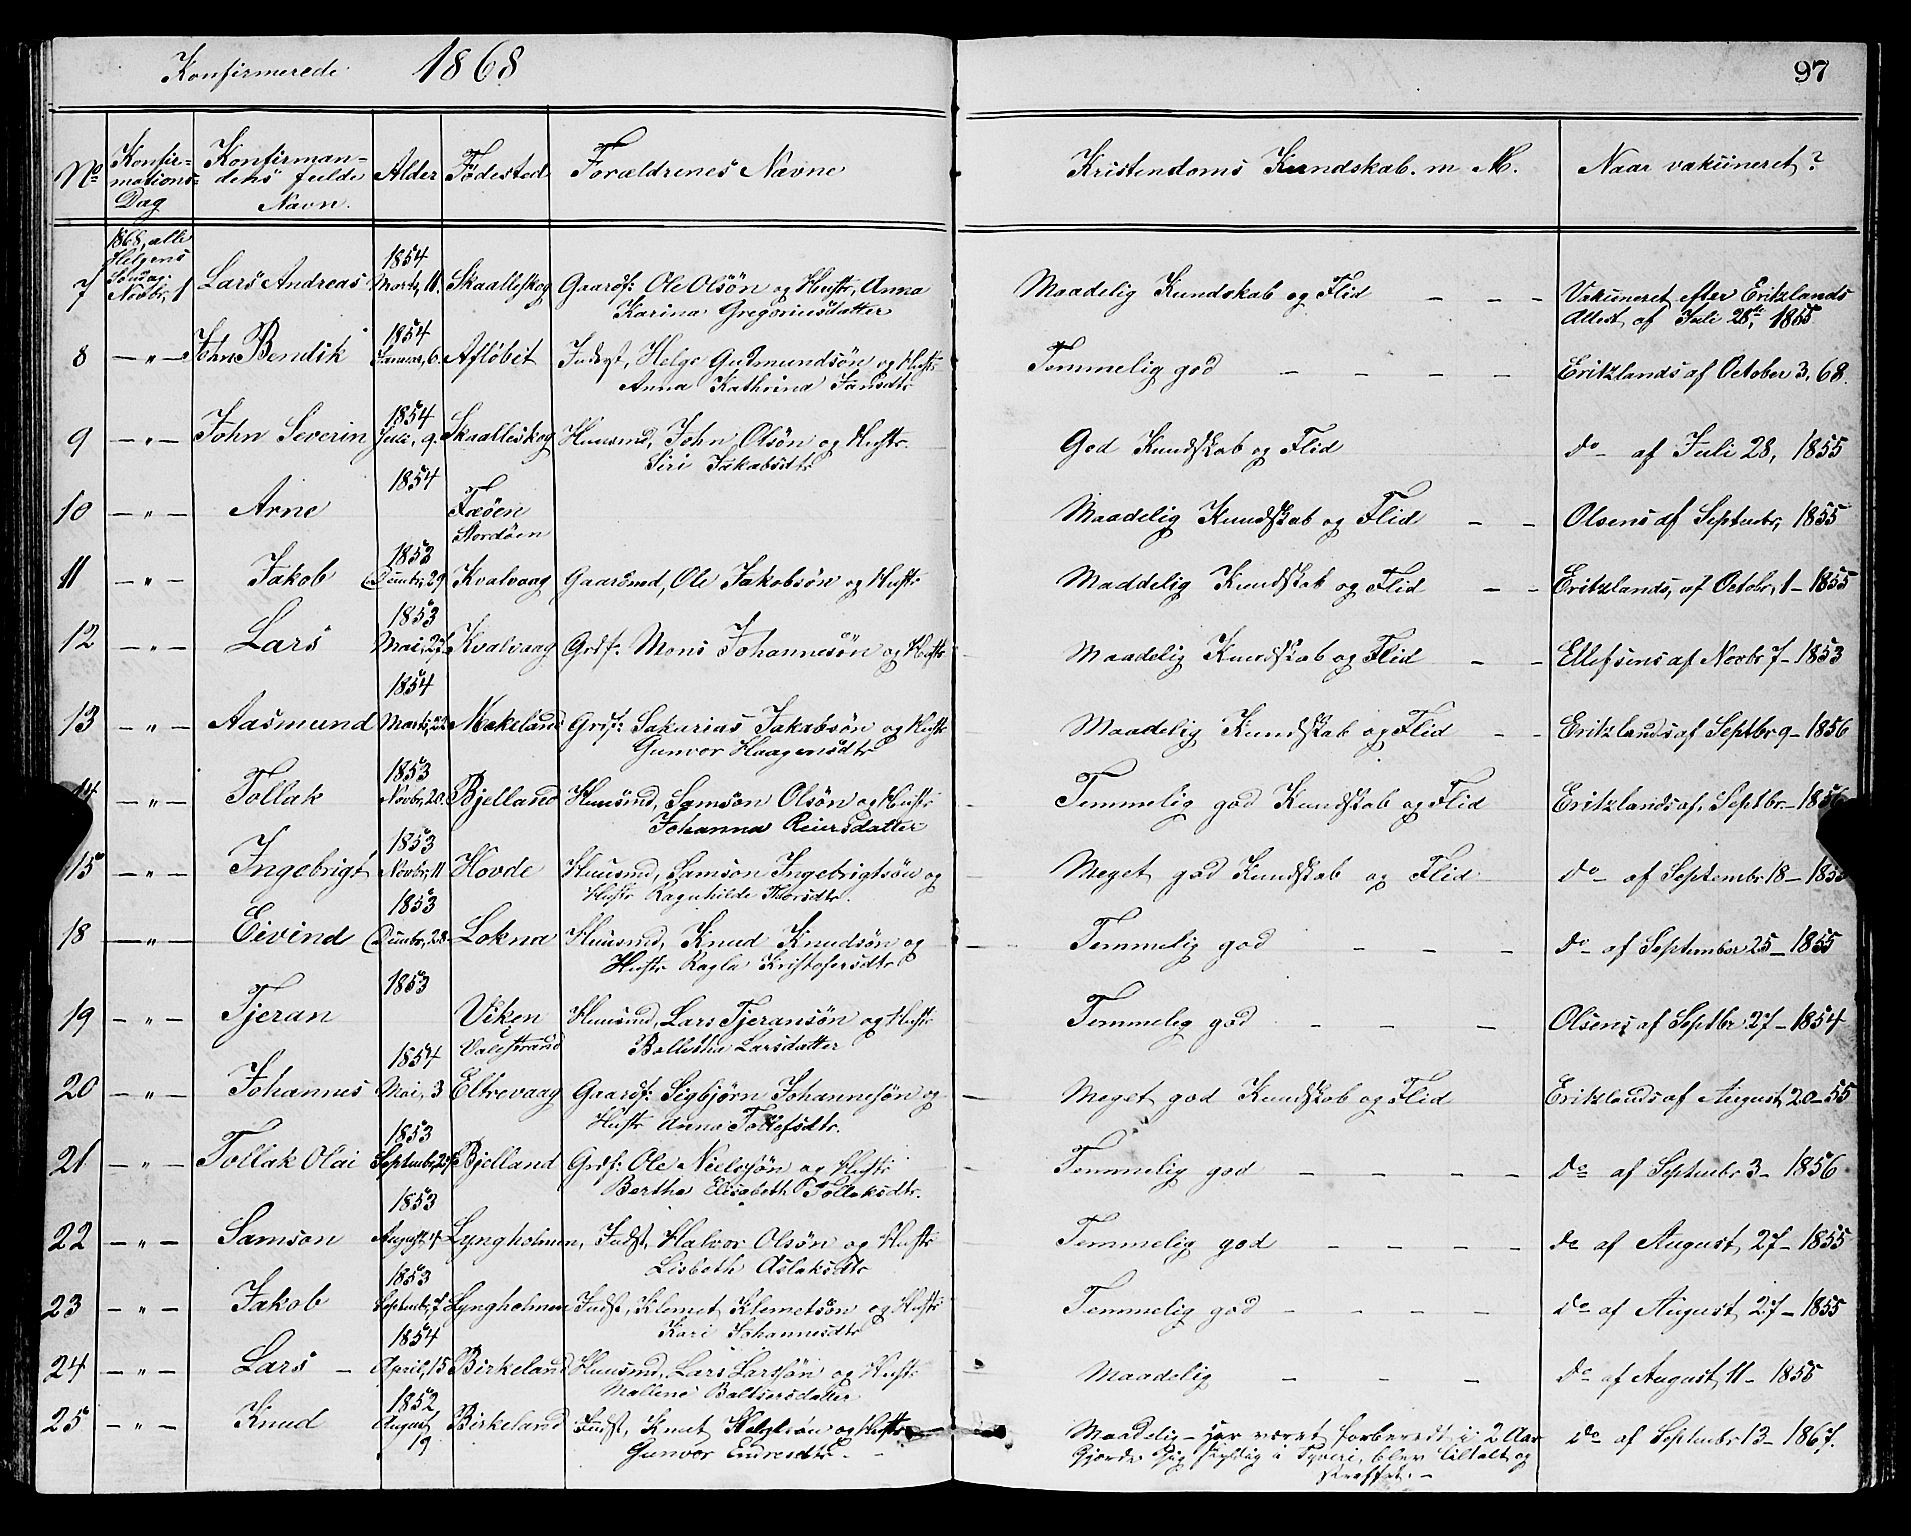 Konfirmerede 1868
97
No Konfir- Konfirman- Alder Fødested Forældrenes Navne Kristendoms Kundskab. m M. Naar vakcineret?
mations- dens fulde
Dag Navn.
1868, alle
Helgens
Søndag
7 Novbr, 1 Lars Andreas 1854 Marts, 11. Skaalleskog Gaardf: Ole Olsøn og Hustr, Anna Maadelig Kundskab og Flid — — — Vakcineret efter Eritzlands
Karina Gregoriusdatter Attest af Juli 28, 1855
8 — " — John Bendik 1854 Januar, 6. Afløbet Inderst, Helge Gudmundsøn og Hustr Temmelig god — — — — Eritzlands af October 3. 68.
Anna Kathrina Jansdtr
9 — " — John Severin 1854 Juli, 9. Skaalleskog Huusmd, John Olsøn og Hustr. God Kundskab og Flid do af Juli 28, 1855
Siri Jakobsdtr
10 — " — Arne 1854 Fæøen Maadelig Kundskab og Flid — — Olsens af Septembr, 1855
Nordøen
11 — " — Jakob 1853 Decembr, 29 Kvalvaag Gaarsmd, Ole Jakobsøn og Hustr Maddelig Kundskab og Flid — — Eritzlands, af Octobr, 1 – 1855
12 — " — Lars 1853 Mai, 27. Kvalvaag Grdf: Mons Johannesøn og Hustr Maadelig Kundskab og Flid — — Ellefsens af Novbr 7 – 1853
13 — " — Aasmund 1854 Marts, 22 Mækeland Grdf: Sakarias Jakobsøn og Hustr Maadelig Kundskab og Flid — — Eritzlands af Septbr 9 – 1856
Gunvor Haagensdtr
14 — " — Tollak 1853 Novbr, 20. Bjelland Huusmd, Samson Olsøn og Hustr Temmelig god Kundskab og Flid Eritzlands af, Septbr. – 1856
Johanna Reiersdatter
15 — " — Ingebrigt 1853 Novbr, 11 Hovde Huusmd, Samson Ingebrigtsøn og Meget god Kundskab og Flid do af Septembr 18 – 185
Hustr Ragnhilde Thorsdtr.
18 — " — Eivind 1853 Decembr, 28. Lokna Huusmd, Knud Knudsøn og Temmelig god — — — do af September 25 – 1855
Hustr Ragla Kristofersdtr
19 — " — Tjeran 1853 Viken Huusmd, Lars Tjeransøn og Hustr Temmelig god — — — Olsens af Septbr 27 – 1854
i Valestrand Larsdatter
20 — " — Johannes 1854 Mai, 3 Eltrevaag Gaardf: Sigbjørn Johannesøn og Meget god Kundskab og Flid Eritzlands af August 20 – 55
Hustr Anna Tollefsdtr.
21 — " — Tollak Olai 1853 Septembr, 27 Bjelland Grdf: Ole Nielssøn og Hustr Temmelig god — — — — do af Septembr 3 – 1856
Bertha Elisabeth Tollaksdtr.
22 — " — Samson 1853 August 4 Lyngholmen, Indst, Halvor Olsøn og Hustr Temmelig god — — — — do af August 27 – 1855
Lisbeth Aslaksdtr
23 — " — Jakob 1853 Septembr, 7. Lyngholmen Indst, Klemet Klemetsøn og Hustr Temmelig god — — — — do af August 27 – 1855
Kari Johannesdtr
24 — " — Lars – 1854 April, 15 Birkeland Huusmd, Lars Larssøn og Hustr Maadelig — — — do af August 11 – 1855
Mallene Baltsersdatter
25 — " — Knud 1852 August 19 Birkeland Indst, Knut Helgesøn og Hustr Maadelig – Har været forberedt i 2 Aar do af Septembr 13 – 1867.
Gunvor Endresdtr. – Gjorde sig skyldig i Tyveri, blev tiltalt og
straffet. –